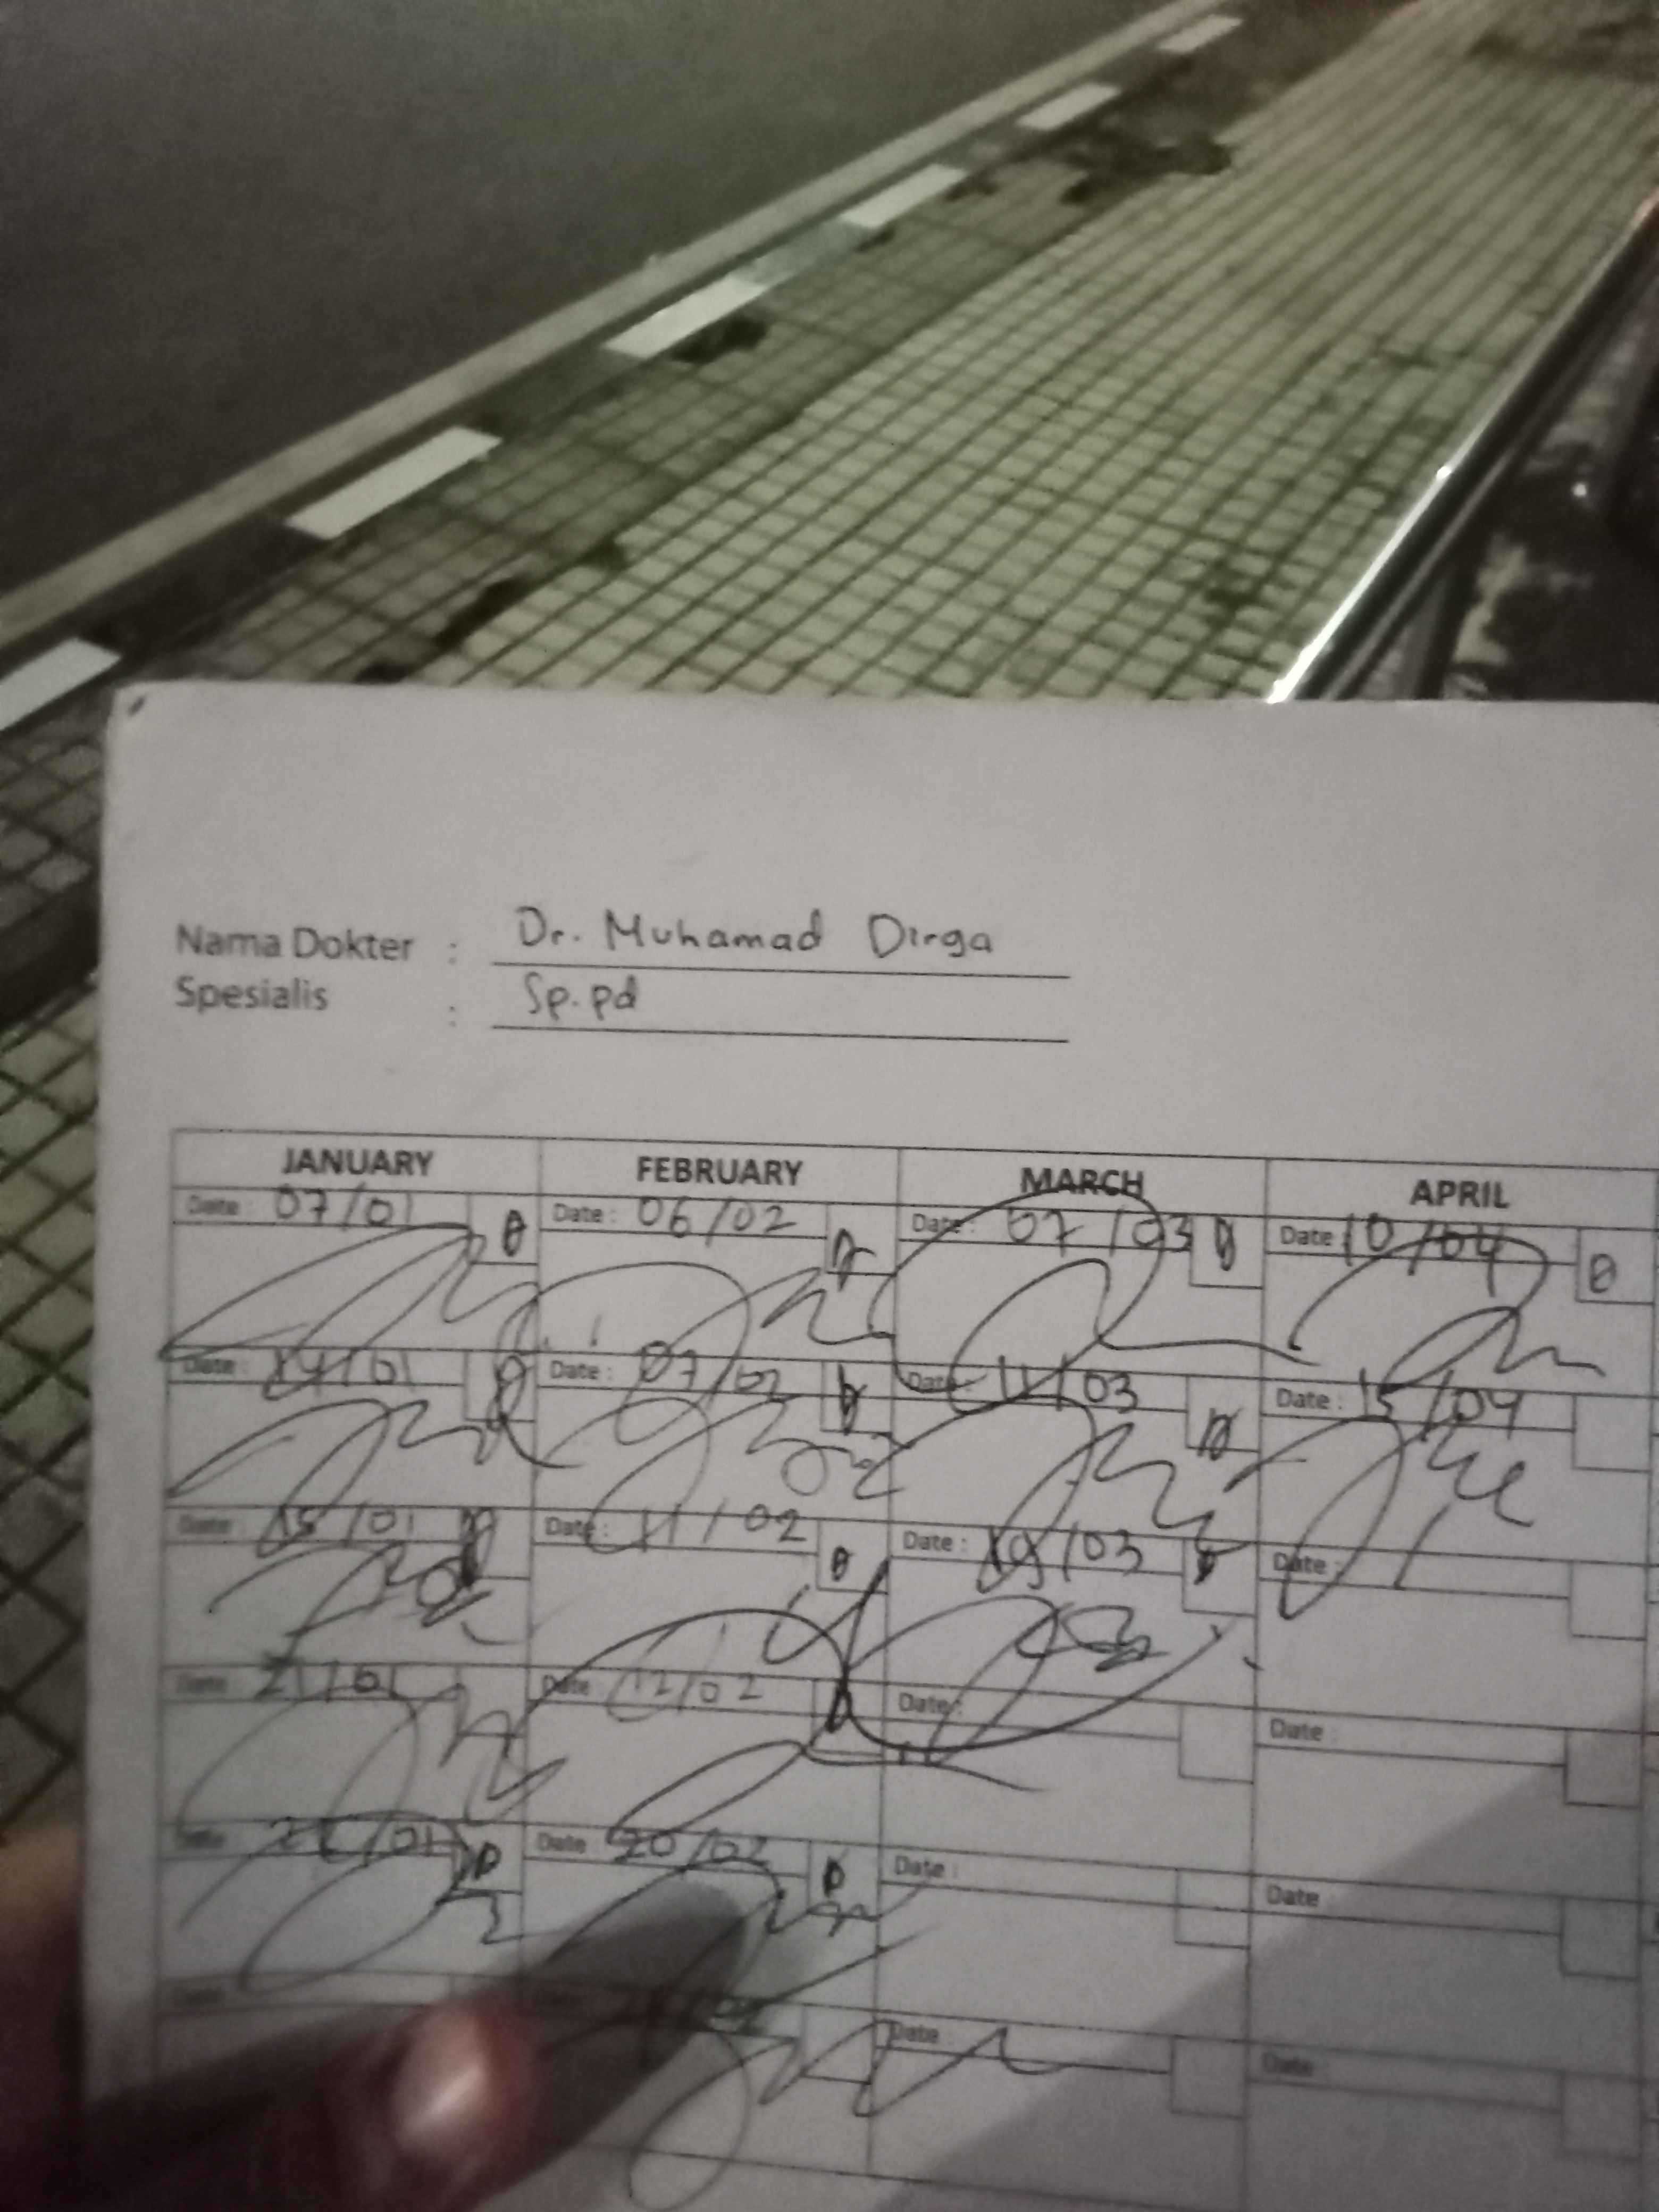 Nama Dokter : Dr. Muhamad Dirga
Spesialis : Sp.pd
JANUARY FEBRUARY MARCH APRIL
Date : 07/01 Date : 06/02 Date : 07/03 Date : 10/04
Date : 14/01 Date : 07/02 Date : 11/03 Date : 15/04
Date : 15/01 Date : 11/02 Date : 19/03 Date :
Date : 21/01 Date : 12/02 Date : Date :
Date : /01 Date : 20/02 Date : Date
Date Date : Date